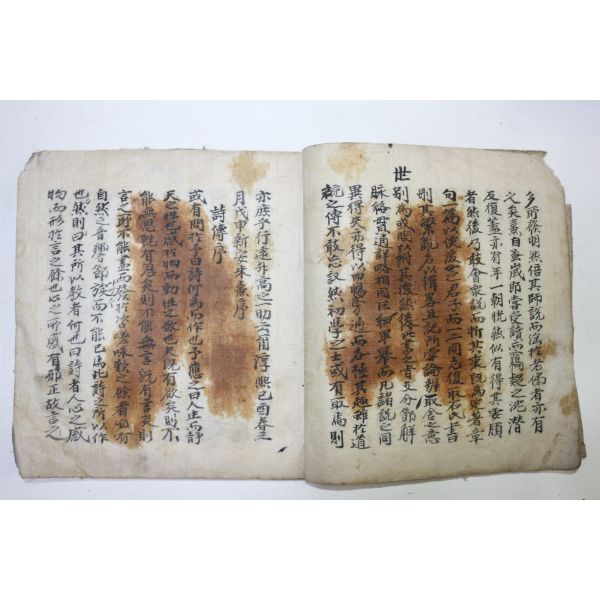 世
多所發明然倍其師說而淫於老佛者亦有
之矣熹自蚤歲卽嘗受讀而竊疑之沈潛
反復蓋亦有年一朝恍然似有得其要領
者然後乃敢會衆說而折其衷旣爲定著章
句一篇以俟後之君子而一二同志復取石氏書
刪其繁亂名以輯畧且記所嘗論辨取舍之意
別爲或問以附其後然後此書之旨支分節解
脉絡貫通詳略相因巨細畢擧而凡諸說之同
異得失亦得以曲暢旁通而各極其趣雖於道
統之傳不敢妄議然初學之士或有取焉則
亦庶乎行遠升高之助云爾淳熙己酉春三
月戊申新安朱熹序
詩傳序
或有問於予曰詩何爲而作也予應之曰人生而靜
天之性也感於物而動性之欲也夫旣有欲矣則不
能無思旣有思矣則不能無言旣有言矣則
言之所不能盡而發於咨嗟咏歎之餘者必有
自然之音響節族而不能已焉此詩之所以作
也然則曰其所以敎者何也曰詩者人心之感
物而形於言之餘也心之所感有邪正故言之